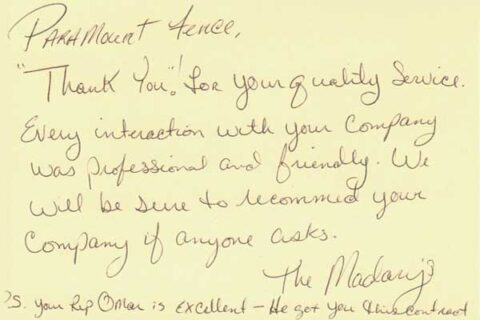 Paramount Fence,
"Thank You"! for your quality Service.
Every interaction with your Company
was professional and friendly. We
will be sure to recommed your
Company if anyone asks.
The
S. Your Rep Omar is Excellent – He got you this contract